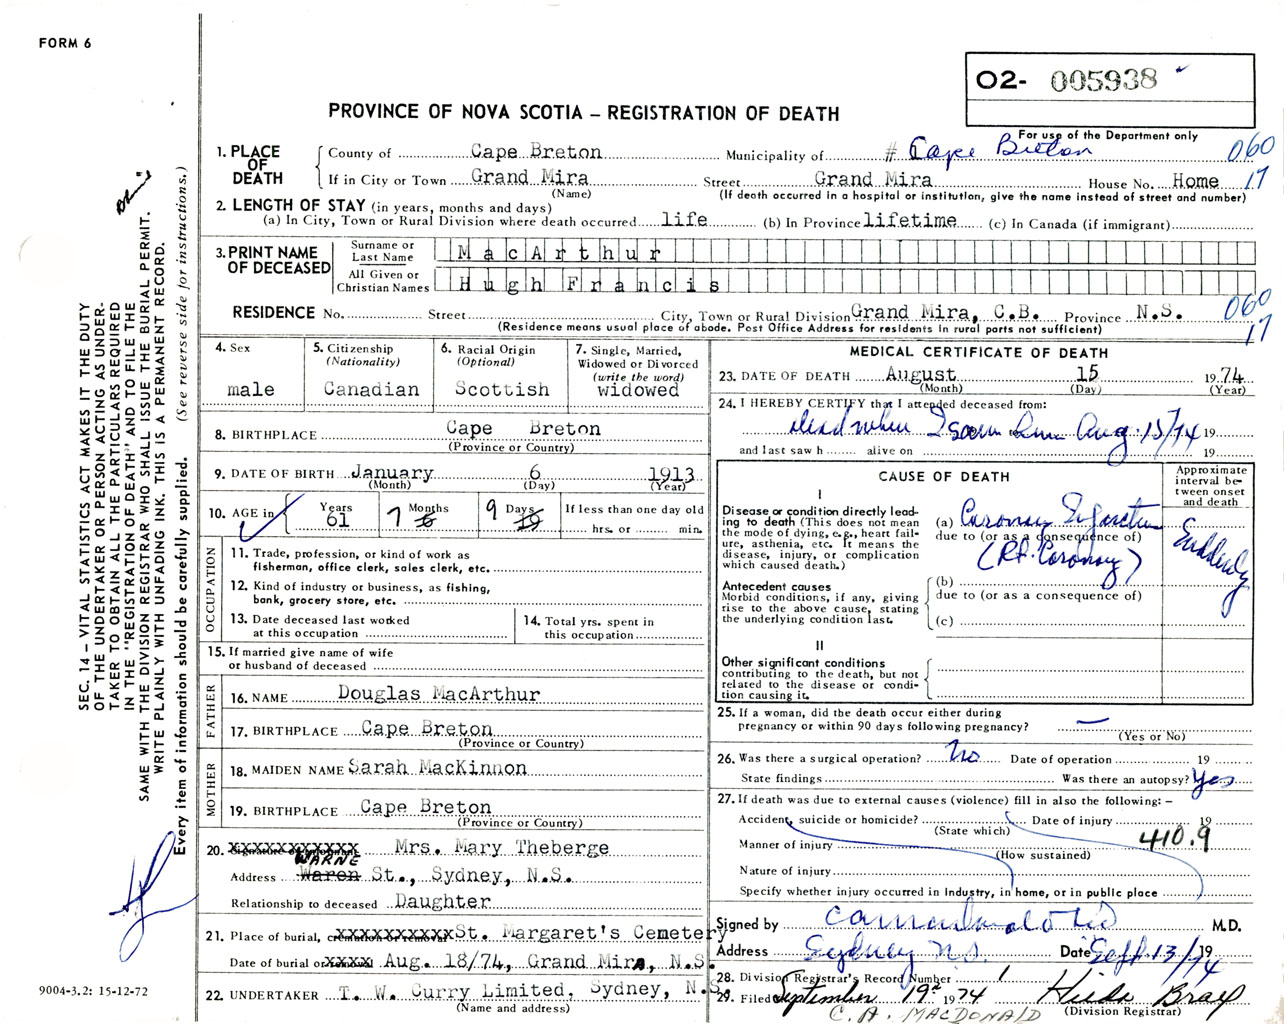 FORM 6
02- 005938
PROVINCE OF NOVA SCOTIA – REGISTRATION OF DEATH
For use of the Department only
1. PLACE OF DEATH
County of Cape Breton Municipality of # Cape Breton 060
If in City or Town Grand Mira Street Grand Mira House No. Home 17
(Name) (If death occurred in a hospital or institution, give the name instead of street and number)
2. LENGTH OF STAY (in years, months and days)
(a) In City, Town or Rural Division where death occurred life (b) In Province lifetime (c) In Canada (if immigrant)
3. PRINT NAME OF DECEASED
Surname or Last Name MacArthur
All Given or Christian Names Hugh Francis
RESIDENCE No. Street City, Town or Rural Division Grand Mira, C.B. Province N.S. 060
(Residence means usual place of abode. Post Office Address for residents in rural parts not sufficient) 17
4. Sex
male
5. Citizenship
(Nationality)
Canadian
6. Racial Origin
(Optional)
Scottish
7. Single, Married,
Widowed or Divorced
(write the word)
widowed
8. BIRTHPLACE Cape Breton
(Province or Country)
9. DATE OF BIRTH January 6 1913
(Month) (Day) (Year)
10. AGE in Years Months Days If less than one day old
61 7 9 hrs. or min.
OCCUPATION
11. Trade, profession, or kind of work as
fisherman, office clerk, sales clerk, etc.
12. Kind of industry or business, as fishing,
bank, grocery store, etc.
13. Date deceased last worked
at this occupation
14. Total yrs. spent in
this occupation
15. If married give name of wife
or husband of deceased
FATHER
16. NAME Douglas MacArthur
17. BIRTHPLACE Cape Breton
(Province or Country)
MOTHER
18. MAIDEN NAME Sarah MacKinnon
19. BIRTHPLACE Cape Breton
(Province or Country)
20. Mrs. Mary Theberge
WARNE
Address Waren St., Sydney, N.S.
Relationship to deceased Daughter
21. Place of burial, cremation or removal St. Margaret's Cemetery
Date of burial or Aug. 18/74, Grand Mira, N.S.
22. UNDERTAKER T. W. Curry Limited, Sydney, N.S.
(Name and address)
MEDICAL CERTIFICATE OF DEATH
23. DATE OF DEATH August 15 1974
(Month) (Day) (Year)
24. I HEREBY CERTIFY that I attended deceased from:
dead when I saw him Aug. 15/74 19
and last saw h alive on 19
CAUSE OF DEATH
Approximate
interval be-
tween onset
and death
I
Disease or condition directly lead-
ing to death (This does not mean
the mode of dying, e.g., heart fail-
ure, asthenia, etc. It means the
disease, injury, or complication
which caused death.)
(a) Coronary Infarction
due to (or as a consequence of)
(Rt. Coronary)
Suddenly
Antecedent causes
Morbid conditions, if any, giving
rise to the above cause, stating
the underlying condition last.
(b)
due to (or as a consequence of)
(c)
II
Other significant conditions
contributing to the death, but not
related to the disease or condi-
tion causing it.
25. If a woman, did the death occur either during
pregnancy or within 90 days following pregnancy? —
(Yes or No)
26. Was there a surgical operation? No Date of operation 19
State findings Was there an autopsy? Yes
27. If death was due to external causes (violence) fill in also the following: –
Accident, suicide or homicide? Date of injury 19
(State which) 410.9
Manner of injury
(How sustained)
Nature of injury
Specify whether injury occurred in industry, in home, or in public place
Signed by M.D.
Address Sydney N.S. Date Sept. 13/74 19
28. Division Registrar's Record Number 1
29. Filed September 19th 1974 Hilda Bray
C. A. MACDONALD (Division Registrar)
SEC. 14 – VITAL STATISTICS ACT MAKES IT THE DUTY
OF THE UNDERTAKER OR PERSON ACTING AS UNDER-
TAKER TO OBTAIN ALL THE PARTICULARS REQUIRED
IN THE "REGISTRATION OF DEATH" AND TO FILE THE
SAME WITH THE DIVISION REGISTRAR WHO SHALL ISSUE THE BURIAL PERMIT.
WRITE PLAINLY WITH UNFADING INK. THIS IS A PERMANENT RECORD.
Every item of information should be carefully supplied. (See reverse side for instructions.)
9004-3.2: 15-12-72